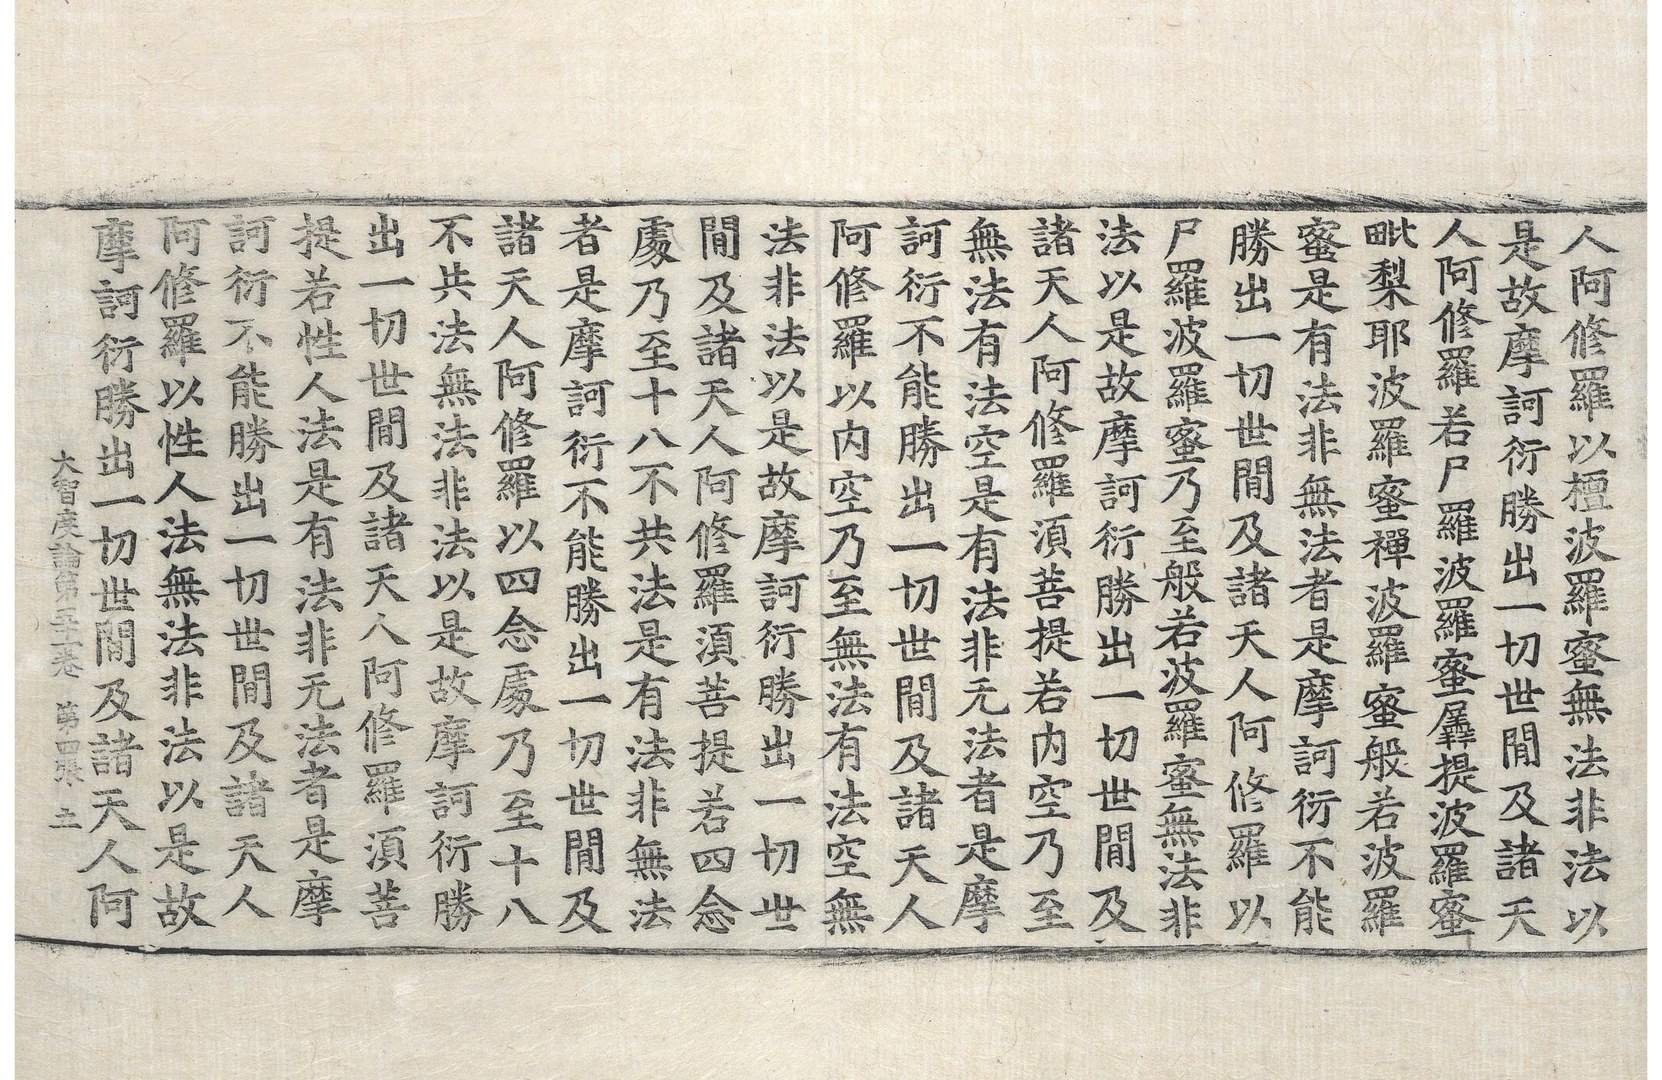 人阿修羅以檀波羅蜜無法非法以
是故摩訶衍勝出一切世閒及諸天
人阿修羅若尸羅波羅蜜羼提波羅蜜
毗梨耶波羅蜜禪波羅蜜般若波羅
蜜是有法非無法者是摩訶衍不能
勝出一切世閒及諸天人阿修羅以
尸羅波羅蜜乃至般若波羅蜜無法非
法以是故摩訶衍勝出一切世閒及
諸天人阿修羅須菩提若內空乃至
無法有法空是有法非无法者是摩
訶衍不能勝出一切世閒及諸天人
阿修羅以內空乃至無法有法空無
法非法以是故摩訶衍勝出一切世
閒及諸天人阿修羅須菩提若四念
處乃至十八不共法是有法非無法
者是摩訶衍不能勝出一切世閒及
諸天人阿修羅以四念處乃至十八
不共法無法非法以是故摩訶衍勝
出一切世閒及諸天人阿修羅須菩
提若性人法是有法非无法者是摩
訶衍不能勝出一切世閒及諸天人
阿修羅以性人法無法非法以是故
摩訶衍勝出一切世閒及諸天人阿
大智度論第五十一卷 第四張 立